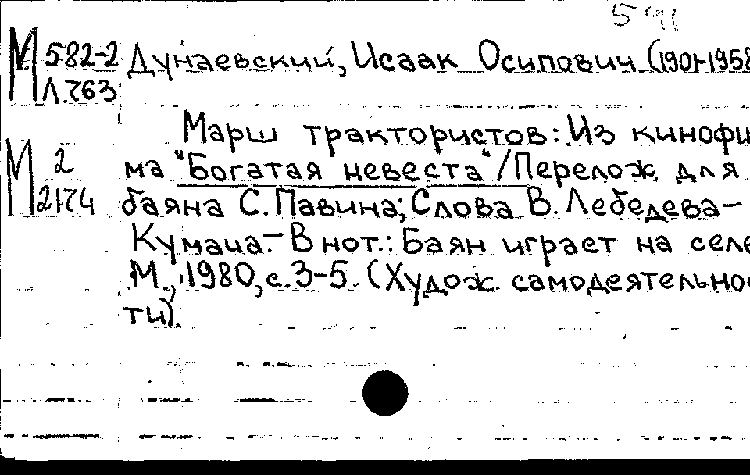 591
М 582-2 Дунаевский, Исаак Осипович (1901-1958
Л.763
Марш трактористов: Из кинофи
М 2 ма "Богатая невеста"/Перелож. для
2174 баяна С. Павина; Слова В. Лебедева-
Кумача.- В нот.: Баян играет на селе
М., 1980, с. 3-5. (Худож. самодеятельнос
ти).